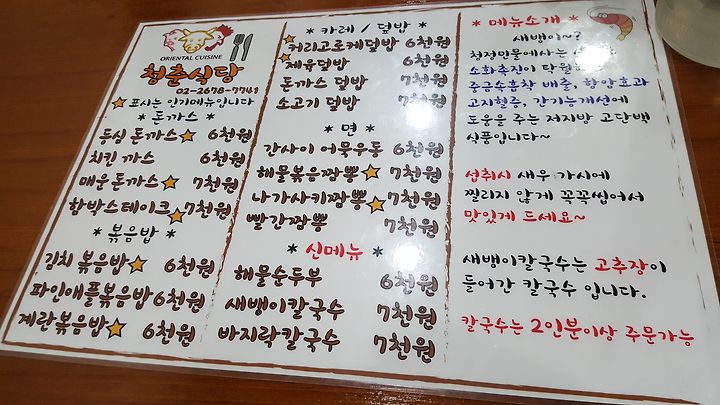 ORIENTAL CUISINE
청춘식당
02-2678-7748
☆ 표시는 인기메뉴입니다
* 돈까스 *
등심 돈까스☆ 6천원
치킨 까스 6천원
매운돈까스☆ 7천원
함박스테이크☆ 7천원
* 볶음밥 *
김치 볶음밥☆ 6천원
파인애플볶음밥 6천원
계란볶음밥☆ 6천원
* 카레 / 덮밥 *
☆커리고로케덮밥 6천원
☆제육덮밥 6천원
돈까스 덮밥 7천원
소고기 덮밥 7천원
* 면 *
간사이 어묵우동 6천원
해물볶음짬뽕☆ 7천원
나가사키짬뽕☆ 7천원
빨간짬뽕 7천원
* 신메뉴 *
해물순두부 6천원
새뱅이칼국수 7천원
바지락칼국수 7천원
* 메뉴소개 *
새뱅이~?
청정민물에사는
소화촉진이 탁월
중금속흡착 배출, 항암효과
고지혈증, 간기능개선에
도움을 주는 저지방 고단백
식품입니다~
섭취시 새우 가시에
찔리지 않게 꼭꼭씹어서
맛있게 드세요~
새뱅이칼국수는 고추장이
들어간 칼국수 입니다.
칼국수는 2인분이상 주문가능